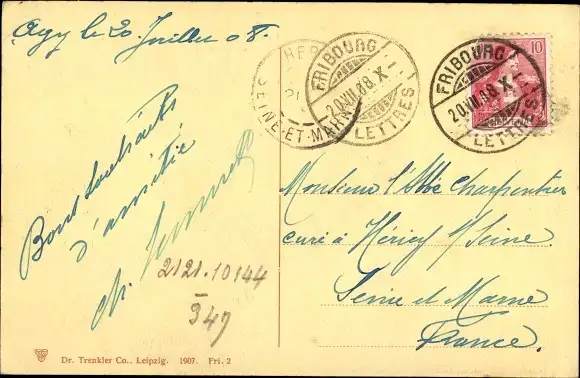 Agy le 20 Juillet 08.
HER
SEINE-ET-MARNE
FRIBOURG
20.VII.08.X-
LETTRES
FRIBOURG
20.VII.08.X-
LETTRES
10
Bons souhaits
d'amitié
Ch.
2121.10144
347
Monsieur l'Abbé Charpentier
curé à Héricy s/Seine.
Seine et Marne
France.
Dr. Trenkler Co., Leipzig. 1907. Fri. 2